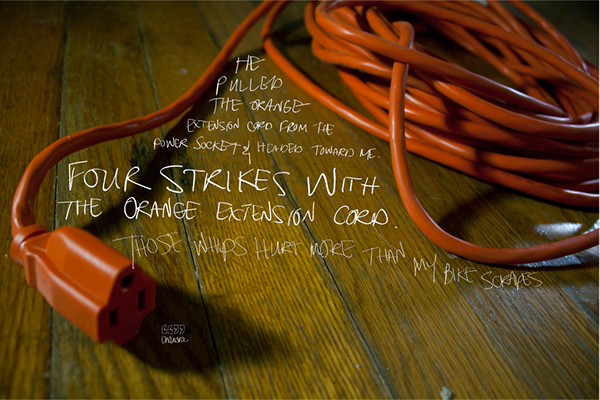 HE
PULLED
THE ORANGE
EXTENSION CORD FROM THE
POWER SOCKET & HEADED TOWARD ME.
FOUR STRIKES WITH
THE ORANGE EXTENSION CORD.
THOSE WHIPS HURT MORE THAN MY BIKE SCRAPES